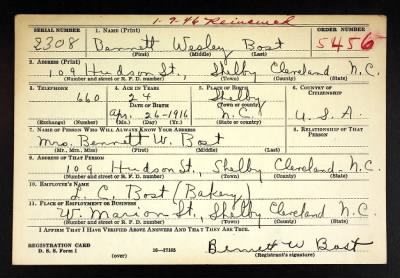 1-9-46
SERIAL NUMBER 1. NAME (Print) ORDER NUMBER
2308 Bennett Wesley Bost 5456
(First) (Middle) (Last)
2. ADDRESS (Print)
109 Hudson St., Shelby Cleveland N.C.
(Number and street or R. F. D. number) (Town) (County) (State)
3. TELEPHONE 4. AGE IN YEARS 5. PLACE OF BIRTH 6. COUNTRY OF CITIZENSHIP
660 24 Shelby
DATE OF BIRTH (Town or county)
Apr. 26-1916 N.C. U.S.A.
(Exchange) (Number) (Mo.) (Day) (Yr.) (State or country)
7. NAME OF PERSON WHO WILL ALWAYS KNOW YOUR ADDRESS 8. RELATIONSHIP OF THAT PERSON
Mrs. Bennett W. Bost
(Mr., Mrs., Miss) (First) (Middle) (Last)
9. ADDRESS OF THAT PERSON
109 Hudson St., Shelby Cleveland N.C.
(Number and street or R. F. D. number) (Town) (County) (State)
10. EMPLOYER'S NAME
L. C. Bost (Bakery)
11. PLACE OF EMPLOYMENT OR BUSINESS
W. Marion St., Shelby Cleveland N.C.
(Number and street or R. F. D. number) (Town) (County) (State)
I AFFIRM THAT I HAVE VERIFIED ABOVE ANSWERS AND THAT THEY ARE TRUE.
REGISTRATION CARD
D. S. S. Form 1 16-17105 Bennett W Bost
(over) (Registrant's signature)